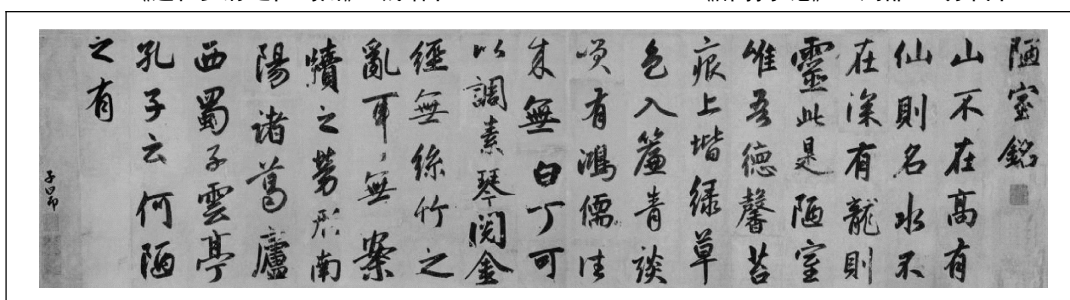 陋室銘
山不在高有
仙則名水不
在深有龍則
靈此是陋室
惟吾德馨苔
痕上堦緑草
色入簾青談
咲有鴻儒往
来無白丁可
以調素琴閲金
經無絲竹之
亂耳無案
牘之勞形南
陽諸葛廬
西蜀子雲亭
孔子云何陋
之有
子昂